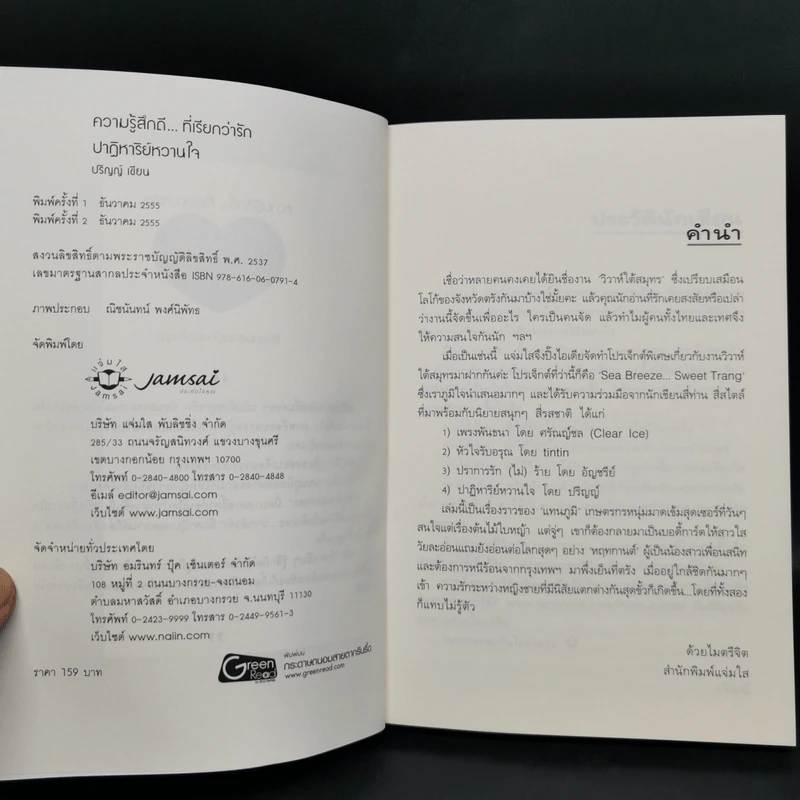 ความรู้สึกดี... ที่เรียกว่ารัก
ปาฏิหาริย์หวานใจ
ปริญญ์ เขียน
พิมพ์ครั้งที่ 1 ธันวาคม 2555
พิมพ์ครั้งที่ 2 ธันวาคม 2555
สงวนลิขสิทธิ์ตามพระราชบัญญัติลิขสิทธิ์ พ.ศ. 2537
เลขมาตรฐานสากลประจำหนังสือ ISBN 978-616-06-0791-4
ภาพประกอบ ณิชนันทน์ พงศ์นิพัทธ
จัดพิมพ์โดย
แจ่มใส
Jamsai
Jamsai
บริษัท แจ่มใส พับลิชชิ่ง จำกัด
285/33 ถนนจรัญสนิทวงศ์ แขวงบางขุนศรี
เขตบางกอกน้อย กรุงเทพฯ 10700
โทรศัพท์ 0-2840-4800 โทรสาร 0-2840-4848
อีเมล์ editor@jamsai.com
เว็บไซต์ www.jamsai.com
จัดจำหน่ายทั่วประเทศโดย
บริษัท อมรินทร์ บุ๊ค เซ็นเตอร์ จำกัด
108 หมู่ที่ 2 ถนนบางกรวย-จงถนอม
ตำบลมหาสวัสดิ์ อำเภอบางกรวย จ.นนทบุรี 11130
โทรศัพท์ 0-2423-9999 โทรสาร 0-2449-9561-3
เว็บไซต์ www.naiin.com
ราคา 159 บาท
Green Read
พิมพ์บน
กระดาษถนอมสายตากรีนรี้ด
www.greenread.com
คำนำ
เชื่อว่าหลายคนคงเคยได้ยินชื่องาน 'วิวาห์ใต้สมุทร' ซึ่งเปรียบเสมือน
โลโก้ของจังหวัดตรังกันมาบ้างใช่มั้ยคะ แล้วคุณนักอ่านที่รักเคยสงสัยหรือเปล่า
ว่างานนี้จัดขึ้นเพื่ออะไร ใครเป็นคนจัด แล้วทำไมผู้คนทั้งไทยและเทศจึง
ให้ความสนใจกันนัก ฯลฯ
เมื่อเป็นเช่นนี้ แจ่มใสจึงปิ๊งไอเดียจัดทำโปรเจ็กต์พิเศษเกี่ยวกับงานวิวาห์
ใต้สมุทรมาฝากกันค่ะ โปรเจ็กต์ที่ว่านี้ก็คือ 'Sea Breeze... Sweet Trang'
ซึ่งเราภูมิใจนำเสนอมากๆ และได้รับความร่วมมือจากนักเขียนสี่ท่าน สี่สไตล์
ที่มาพร้อมกับนิยายสนุกๆ สี่รสชาติ ได้แก่
1) เพรงพันธนา โดย ศรัณญ์ชล (Clear Ice)
2) หัวใจรับอรุณ โดย tintin
3) ปราการรัก (ไม่) ร้าย โดย อัญชรีย์
4) ปาฏิหาริย์หวานใจ โดย ปริญญ์
เล่มนี้เป็นเรื่องราวของ 'แทนภูมิ' เกษตรกรหนุ่มมาดเข้มสุดเซอร์ที่วันๆ
สนใจแต่เรื่องต้นไม้ใบหญ้า แต่จู่ๆ เขาก็ต้องกลายมาเป็นบอดี้การ์ดให้สาวใส
วัยละอ่อนแถมยังอ่อนต่อโลกสุดๆ อย่าง 'หฤทกานต์' ผู้เป็นน้องสาวเพื่อนสนิท
และต้องการหนีร้อนจากกรุงเทพฯ มาพึ่งเย็นที่ตรัง เมื่ออยู่ใกล้ชิดกันมากๆ
เข้า ความรักระหว่างหญิงชายที่มีนิสัยแตกต่างกันสุดขั้วก็เกิดขึ้น...โดยที่ทั้งสอง
ก็แทบไม่รู้ตัว
ด้วยไมตรีจิต
สำนักพิมพ์แจ่มใส